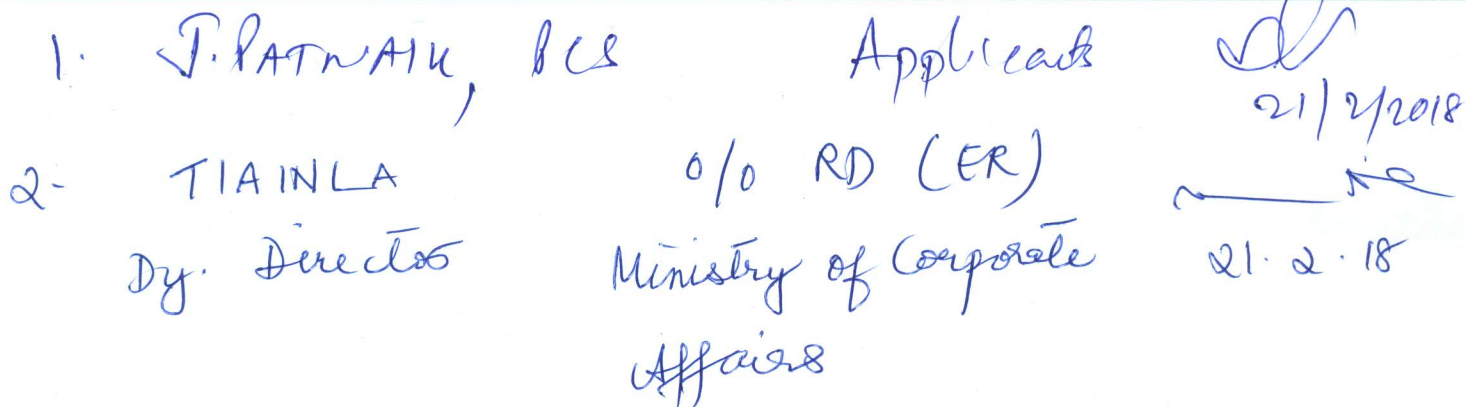 1. J. PATNAIK, PCS Applicants
21/2/2018
2- TIAINLA o/o RD (ER)
Dy. Director Ministry of Corporate 21.2.18
Affairs